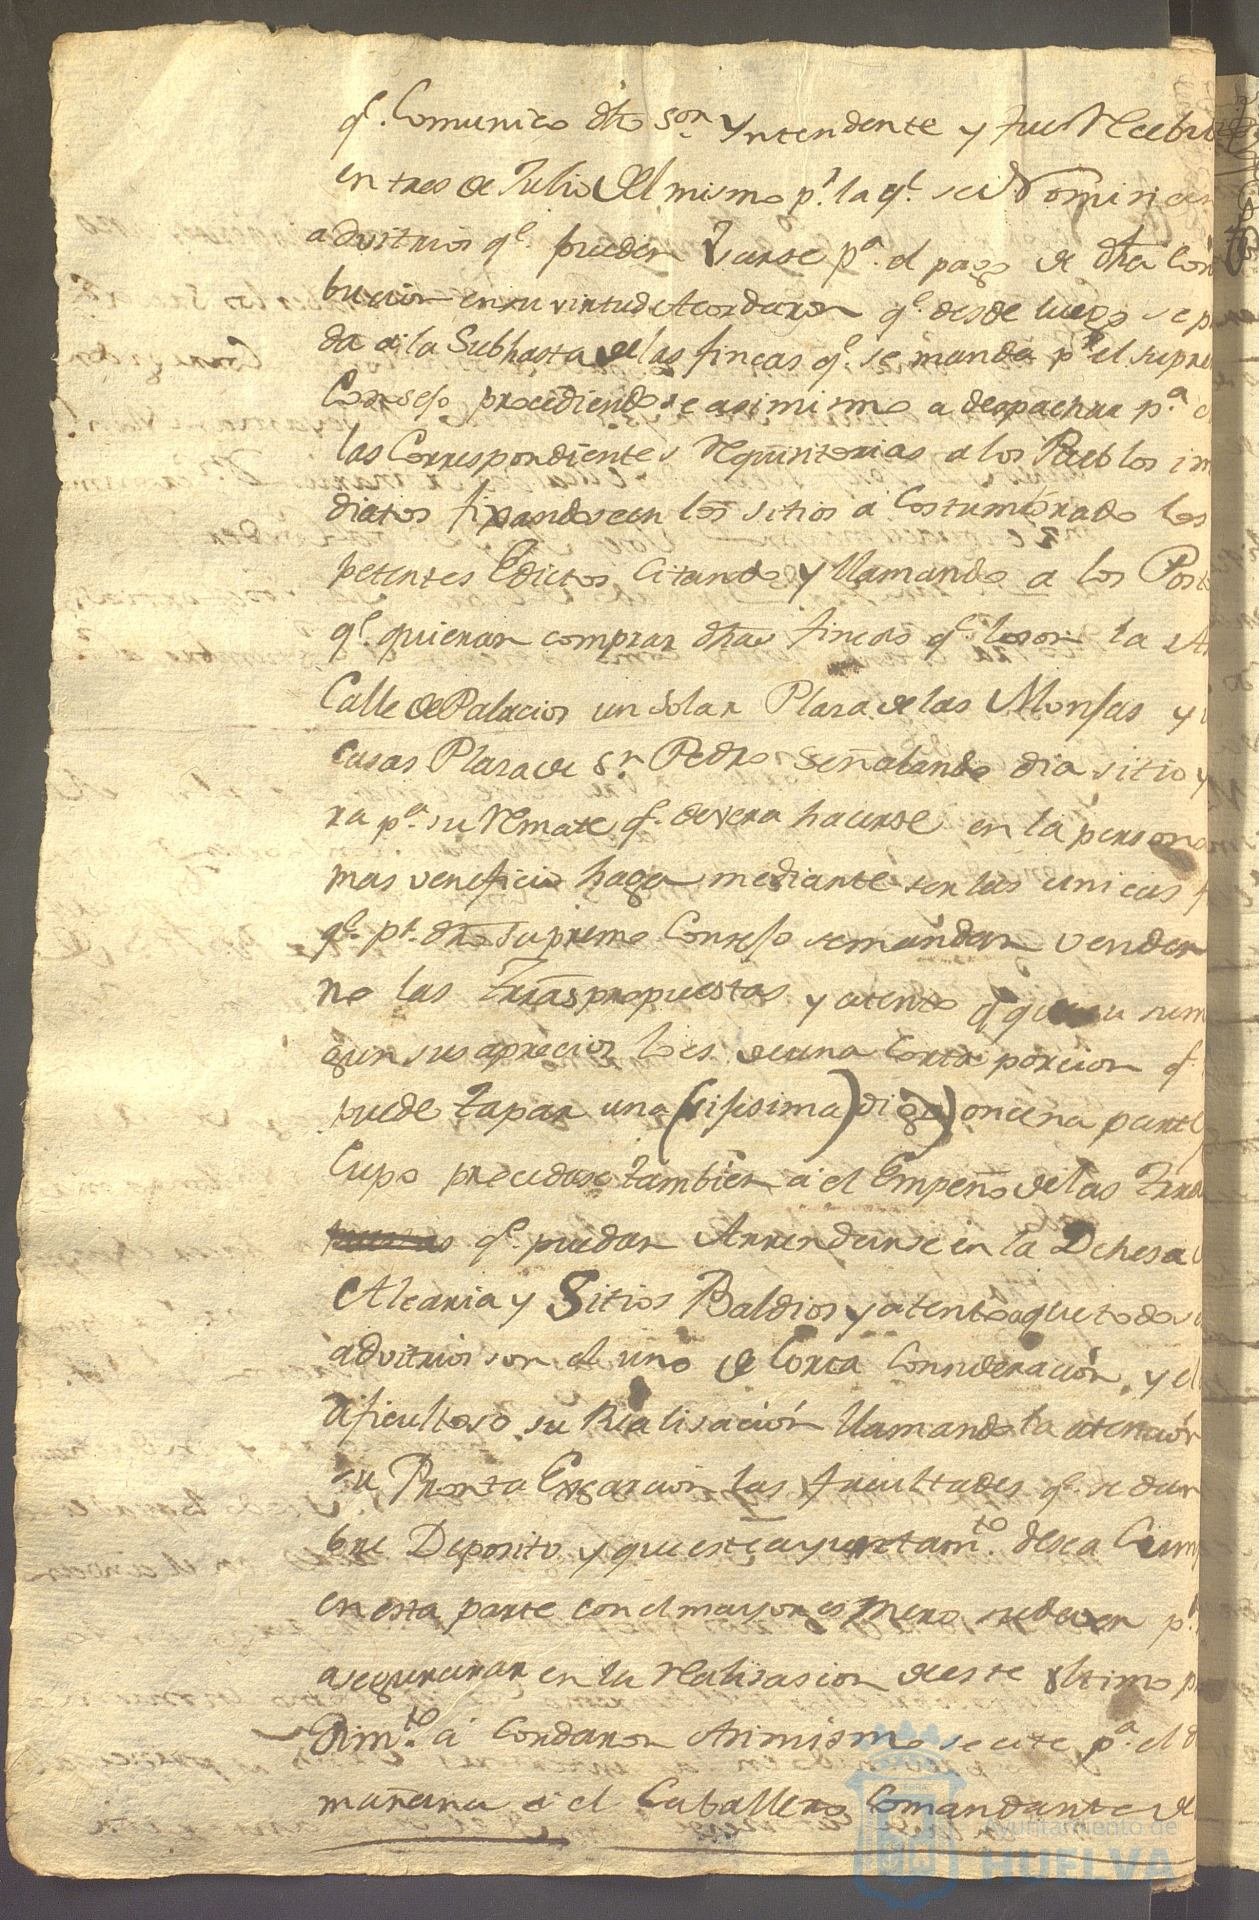 q.e Comunico dho Sor. Yntendente y fue Recebi
en tres de Julio del mismo p.r la q.e se Nominan
advitrios q.e pueden Usarse p.a el pago de dha Con
bucion en su virtud Acordaron q.e desde luego se p
da a la Subhasta de las fincas q.e se manda p.r el supre
Consejo procediendose asimismo a despachar p.a
las Correspondientes Requisitorias a los Pueblos in
diatos fixandose en los sitios a Costumbrado los
petentes Edictos Citando y llamando a los Post
q.e quieran comprar dhas fincas q.e lo son la
Calle de Palacios un solar Plaza de las Monjas y
casas Plaza de Sn. Pedro Señalando dia sitio y
ra p.a su Remate q.e devera hacerse en la person
mas veneficio haga mediante ser las unicas
q.e p.r dho Supremo Consejo se mandan vender
no las tras propuestas y atento q.e su
gun sus aprecios lo es de una Corta porcion q.e
puede tapar una (sisisima) digo) oncena parte
Cupo procedase tambien a el Empeño de las
q.e puedan Arrendarse en la Dehesa
Alcaria y Sitios Baldios y atento a que todos
advitrios son el uno de Corta Consideracion, y el
dificultoso su Realisación llamando la atencion
su Pronta Exsacion las facultades q.e se dan
bre Deposito y que este ayuntam.to desea Cum
en esta parte con el mayor esmero se deven p.r
asegurarar en la Realisasion de este ultimo p
Dim.to a Cordaron Asimismo se cite p.a el d
mañana a el Caballero Comandante de
Ayuntamiento de
HUELVA